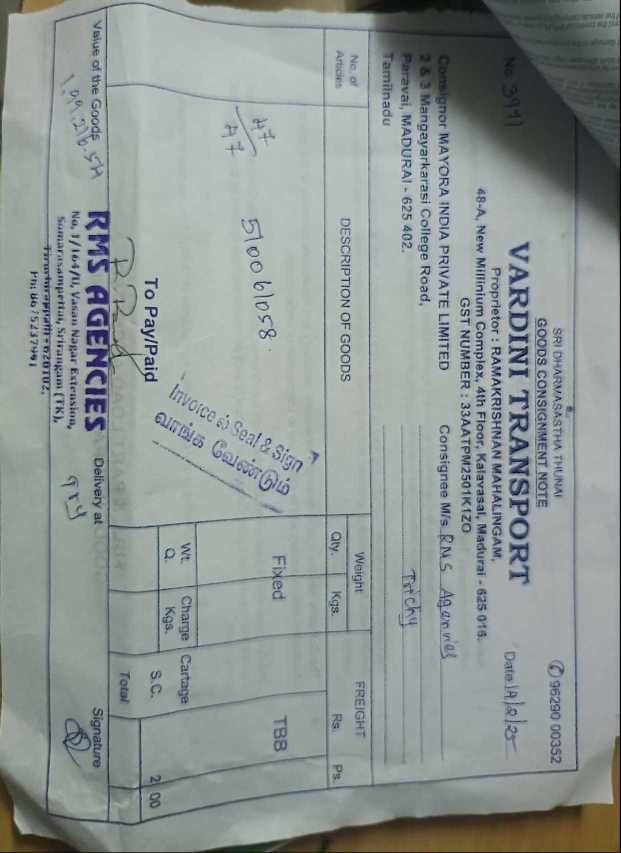 SRI DHARMASASTHA THUNAI
GOODS CONSIGNMENT NOTE
✆ 96290 00352
VARDINI TRANSPORT
Proprietor : RAMAKRISHNAN MAHALINGAM,
48-A, New Millinium Complex, 4th Floor, Kalavasal, Madurai - 625 016.
GST NUMBER : 33AATPM2501K1ZO
No. 3941
Date 14/2/25
Consignor MAYORA INDIA PRIVATE LIMITED
2 & 3 Mangayarkarasi College Road,
Paravai, MADURAI - 625 402.
Tamilnadu
Consignee M/s. RMS Agencies
Trichy
No. of Articles
DESCRIPTION OF GOODS
Weight
Qty. Kgs.
FREIGHT
Rs. Ps.
47/47
510061058.
Fixed
TBB
Invoice ல் Seal & Sign
வாங்க வேண்டும்
Wt. Q.
Charge Kgs.
Cartage
S.C. 2 00
Total
To Pay/Paid
Value of the Goods
Delivery at
Try
Signature
RMS AGENCIES
No. 1/164/D, Vasan Nagar Extension,
Somarasampettai, Srirangam (TK),
Tiruchirappalli - 620102.
PH: 8675237991